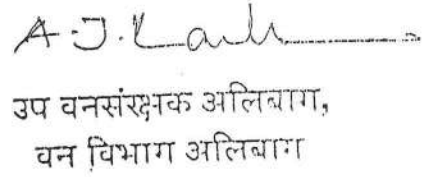 उप वनसंरक्षक अलिबाग,
वन विभाग अलिबाग